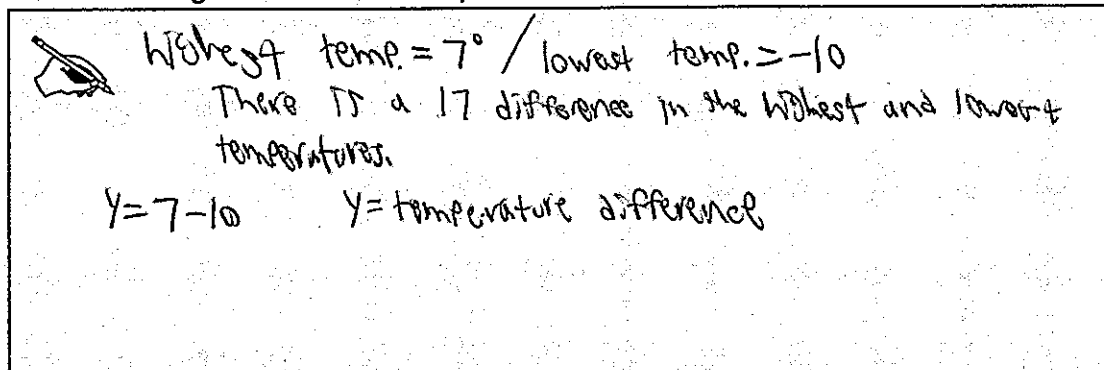 highest temp. = 7° / lowest temp. = -10
There is a 17 difference in the highest and lowest
temperatures.
y = 7 - 10 y = temperature difference